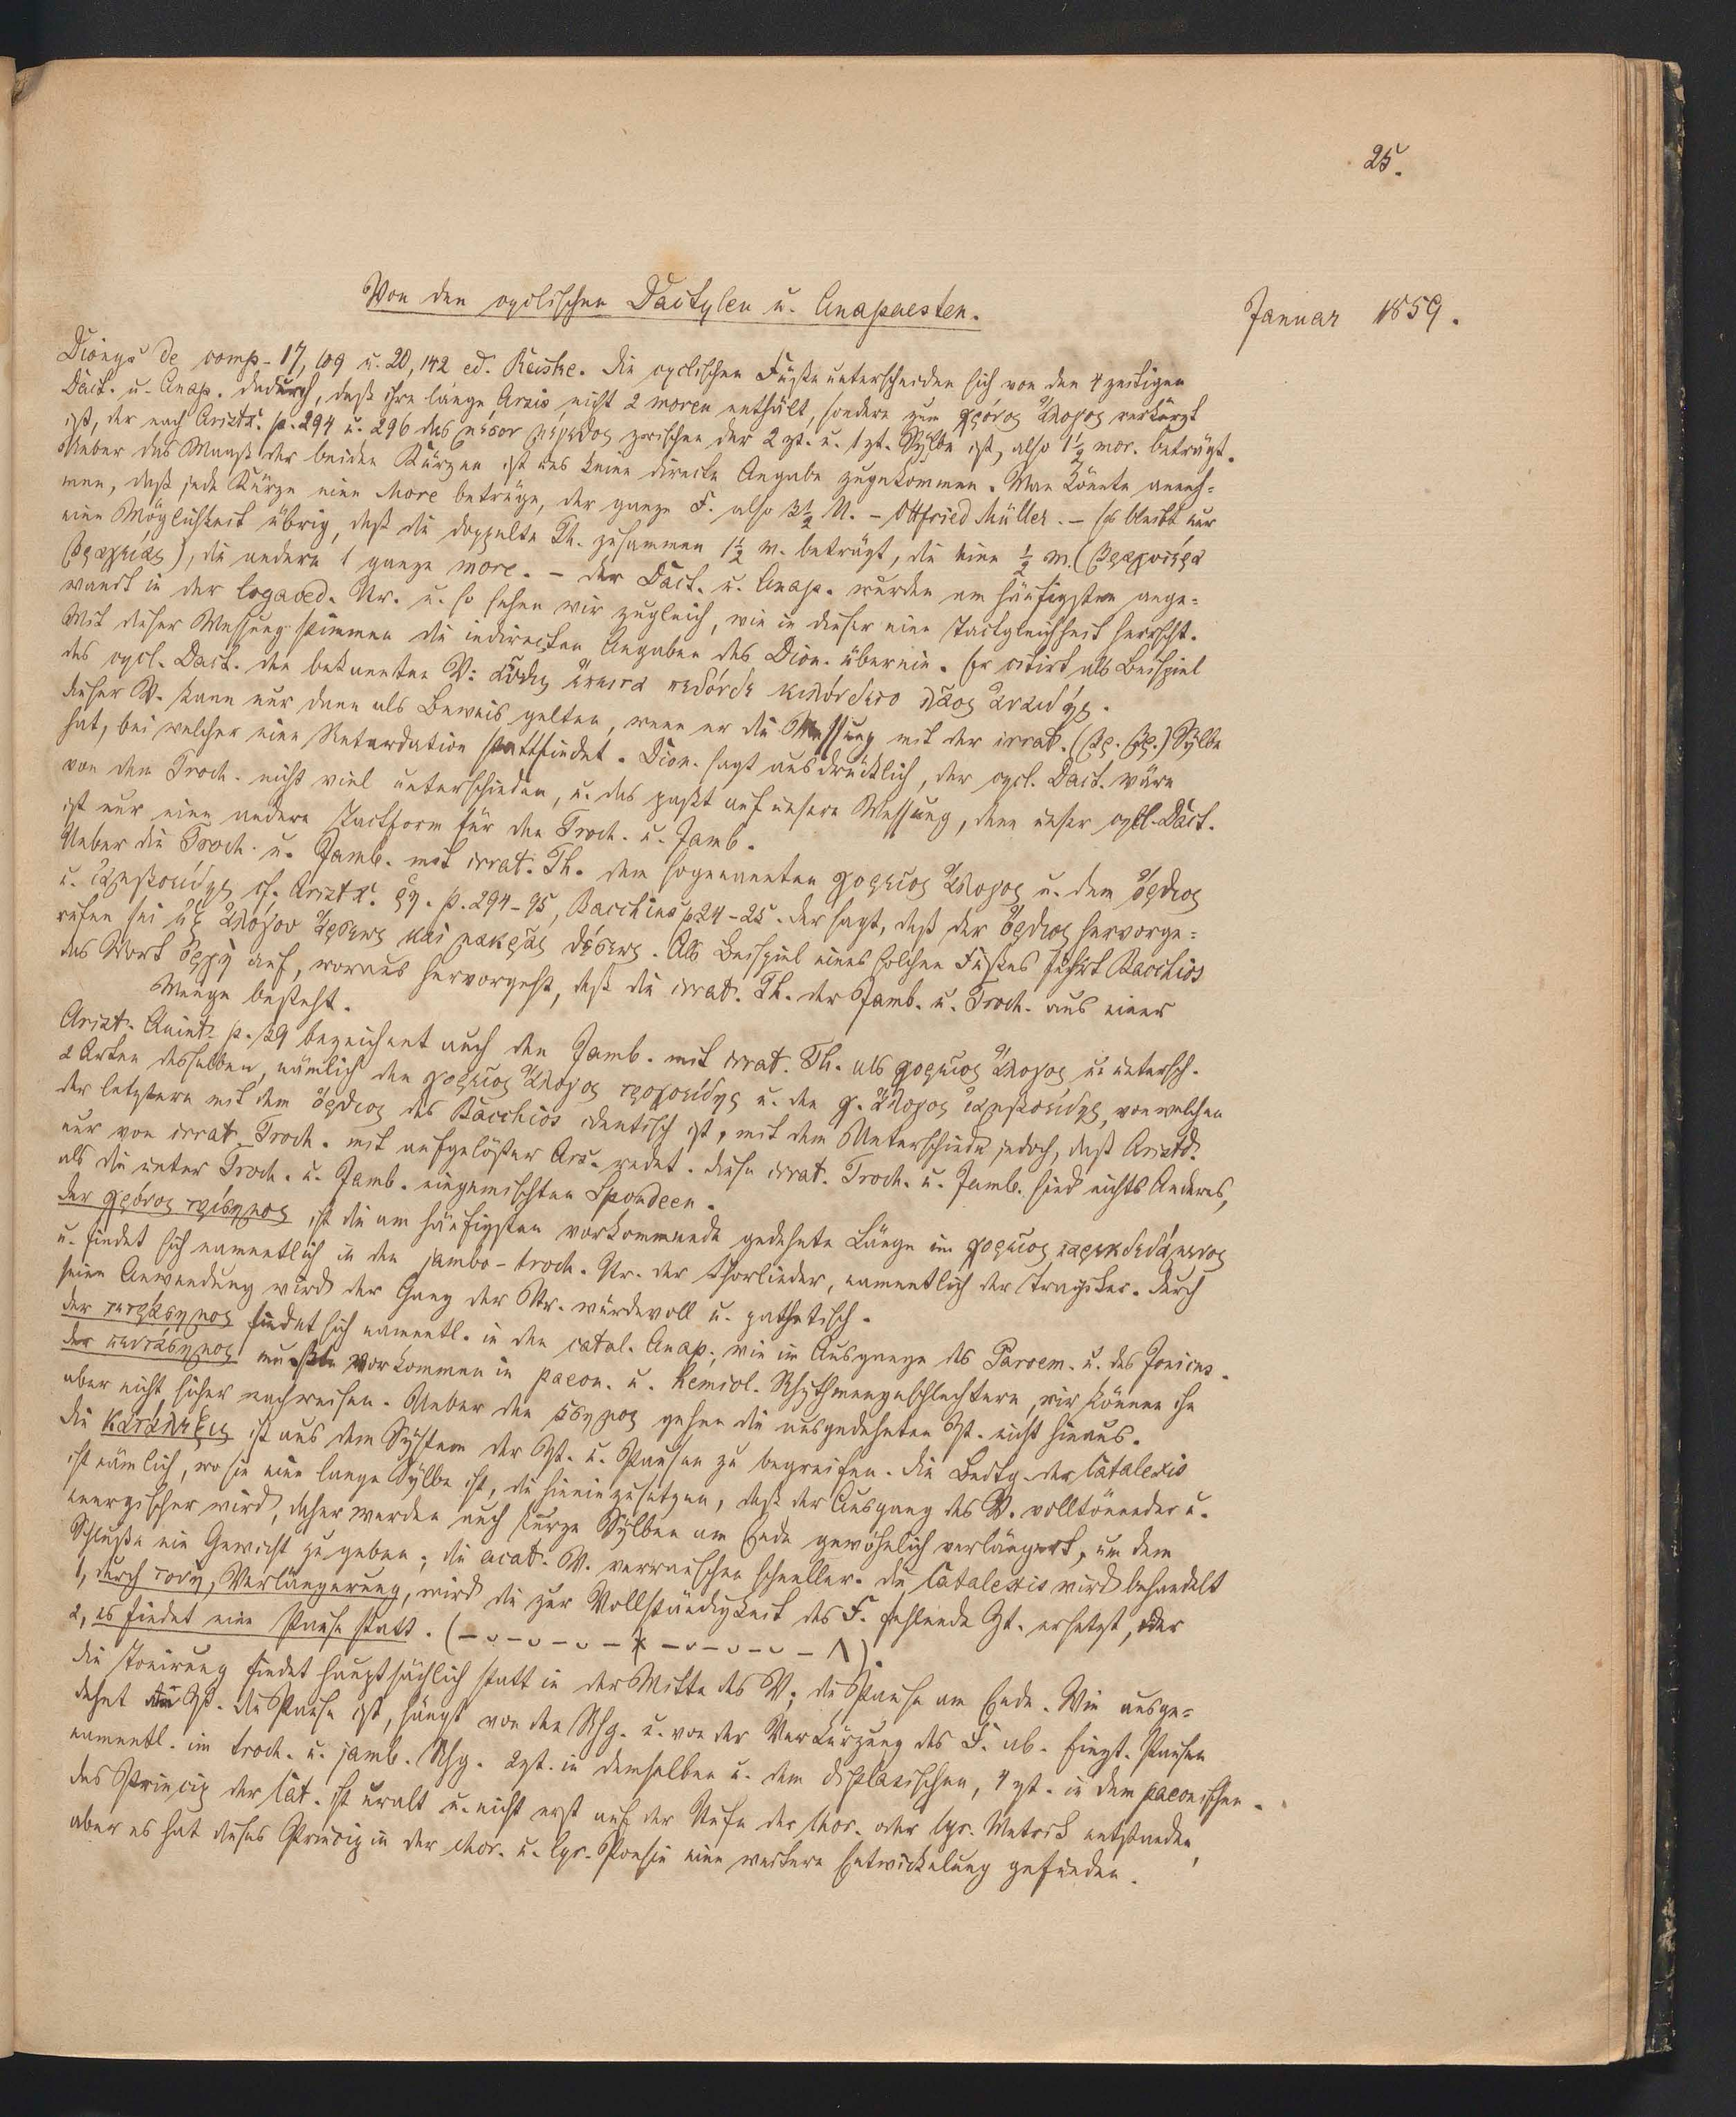 25.
Von den cyclischen Dactylen u. Anapaesten.
Januar 1859.
Dionys de comp. 17, 109 u. 20, 142 ed. Reiske. Die cyclischen Füße unterscheiden sich von den 4 zeitigen
Dact. u. Anap. dadurch, daß ihre lange Arsis nicht 2 moren enthält, sondern zum χρόνος ἄλογος verkürzt
ist, der nach Aristx. p. 294 u. 296 das μέσον μέγεθος zwischen der 2 zt. u. 1 zt. Sylbe ist, also 1½ mor. beträgt.
Ueber das Maaß der beiden Kürzen ist uns keine directe Angabe zugekommen. Man könnte anneh=
men, daß jede Kürze eine More betrüge, der ganze F. also 3½ M. – Ottfried Müller. – Es bleibt nur
eine Möglichkeit übrig, daß die doppelte Th. zusammen 1½ m. beträgt, die eine ½ m. (βραχυτέρα
βραχείας), die andere 1 ganze more. – Der Dact. u. Anap. wurden am häufigsten ange=
wandt in der logaoed. Str. u. so sehen wir zugleich, wie in dieser eine Tactgleichheit herrscht.
Mit dieser Messung stimmen die indirecten Angaben des Dion. überein. Er citirt als Beispiel
des cycl. Dact. den bekannten V: αὖθις ἔπειτα πέδονδε κυλίνδετο λᾶας ἀναιδής.
Dieser V. kann nur dann als Beweis gelten, wenn er die Messung mit der irrat. (βρ. βρ.) Sylbe
hat, bei welcher eine Retardation stattfindet. Dion. sagt ausdrücklich, der cycl. Dact. wäre
von dem Troch. nicht viel unterschieden, u. das paßt auf unsere Messung, denn unser cycl. Dact.
ist nur eine andere Tactform für den Troch. u. Jamb.
Ueber die Troch. u. Jamb. mit irrat. Th. dem sogenannten χορεῖος ἄλογος u. dem ὄρθιος
u. ἰαμβοειδής cf. Aristx. ῥυ. p. 294–95, Bacchius p 24–25. Der sagt, daß der ὄρθιος hervorge=
rufen sei ἐξ ἀλόγου ἄρσεως καὶ μακρᾶς θέσεως. Als Beispiel eines solchen Fußes führt Bacchios
das Wort ὀργή auf, woraus hervorgeht, daß die irrat. Th. der Jamb. u. Troch. aus einer
Länge besteht.
Arist. Quint. p. 39 bezeichnet auch den Jamb. mit irrat. Th. als χορεῖος ἄλογος u. untersch.
2 Arten desselben, nämlich den χορεῖος ἄλογος τροχοειδής u. den χ. ἄλογος ἰαμβοειδής, von welchen
der letztere mit dem ὄρθιος des Bacchios identisch ist, mit dem Unterschiede jedoch, daß Aristd.
nur von irrat. Troch. mit aufgelöster Ars. redet. Diese irrat. Troch. u. Jamb. sind nichts Anderes,
als die unter Troch. u. Jamb. eingemischten Spondeen.
Der χρόνος τρίσημος ist die am häufigsten vorkommende gedehnte Länge im χορεῖος
u. findet sich namentlich in den jambo-troch. Str. der Chorlieder, namentlich der Tragiker. Durch
seine Anwendung wird der Gang der Str. würdevoll u. pathetisch.
Der τετράσημος findet sich namentl. in den catal. Anap., wie im Ausgange des Paroem. u. des Jonicus.
Der πεντάσημος mußte vorkommen in paeon. u. hemiol. Rhythmengeschlechtern, wir können ihn
aber nicht sicher nachweisen. Ueber den 5σημος gehen die ausgedehnten Zt. nicht hinaus.
Die Κατάληξις ist aus dem System der Zt. u. Pausen zu begreifen. Die Bedtg. der Catalexis
ist nämlich, wo sie eine lange Sylbe ist, die hineinzusetzen, daß der Ausgang des V. volltönender u.
energischer wird, daher werden auch kurze Sylben am Ende gewöhnlich verlängert, um dem
Schluße ein Gewicht zu geben; die acat. V. verrauschen schneller. Die Catalexis wird behandelt
1, durch τονή, Verlängerung, wird die zur Vollständigkeit des F. fehlende Zt. ersetzt, oder
2, es findet eine Pause statt. (– ᴗ – ᴗ – ᴗ – × – ᴗ – ᴗ – ᴗ – Λ).
Die Tonirung findet hauptsächlich statt in der Mitte des V; die Pause am Ende. Wie ausge=
dehnt die Zt. die Pause ist, hängt von den Rhg. u. von der Verkürzung des F. ab. Einzt. Pausen
namentl. im troch. u. jamb. Rhg. 2zt. in demselben u. dem diplasischen, 4 zt. in dem paeonischen.
Das Princip der Cat. ist uralt u. nicht erst auf der Stufe der chor. oder lyr. Metrik entstanden,
aber es hat dieses Princip in der chor. u. lyr. Poesie eine weitere Entwickelung gefunden.